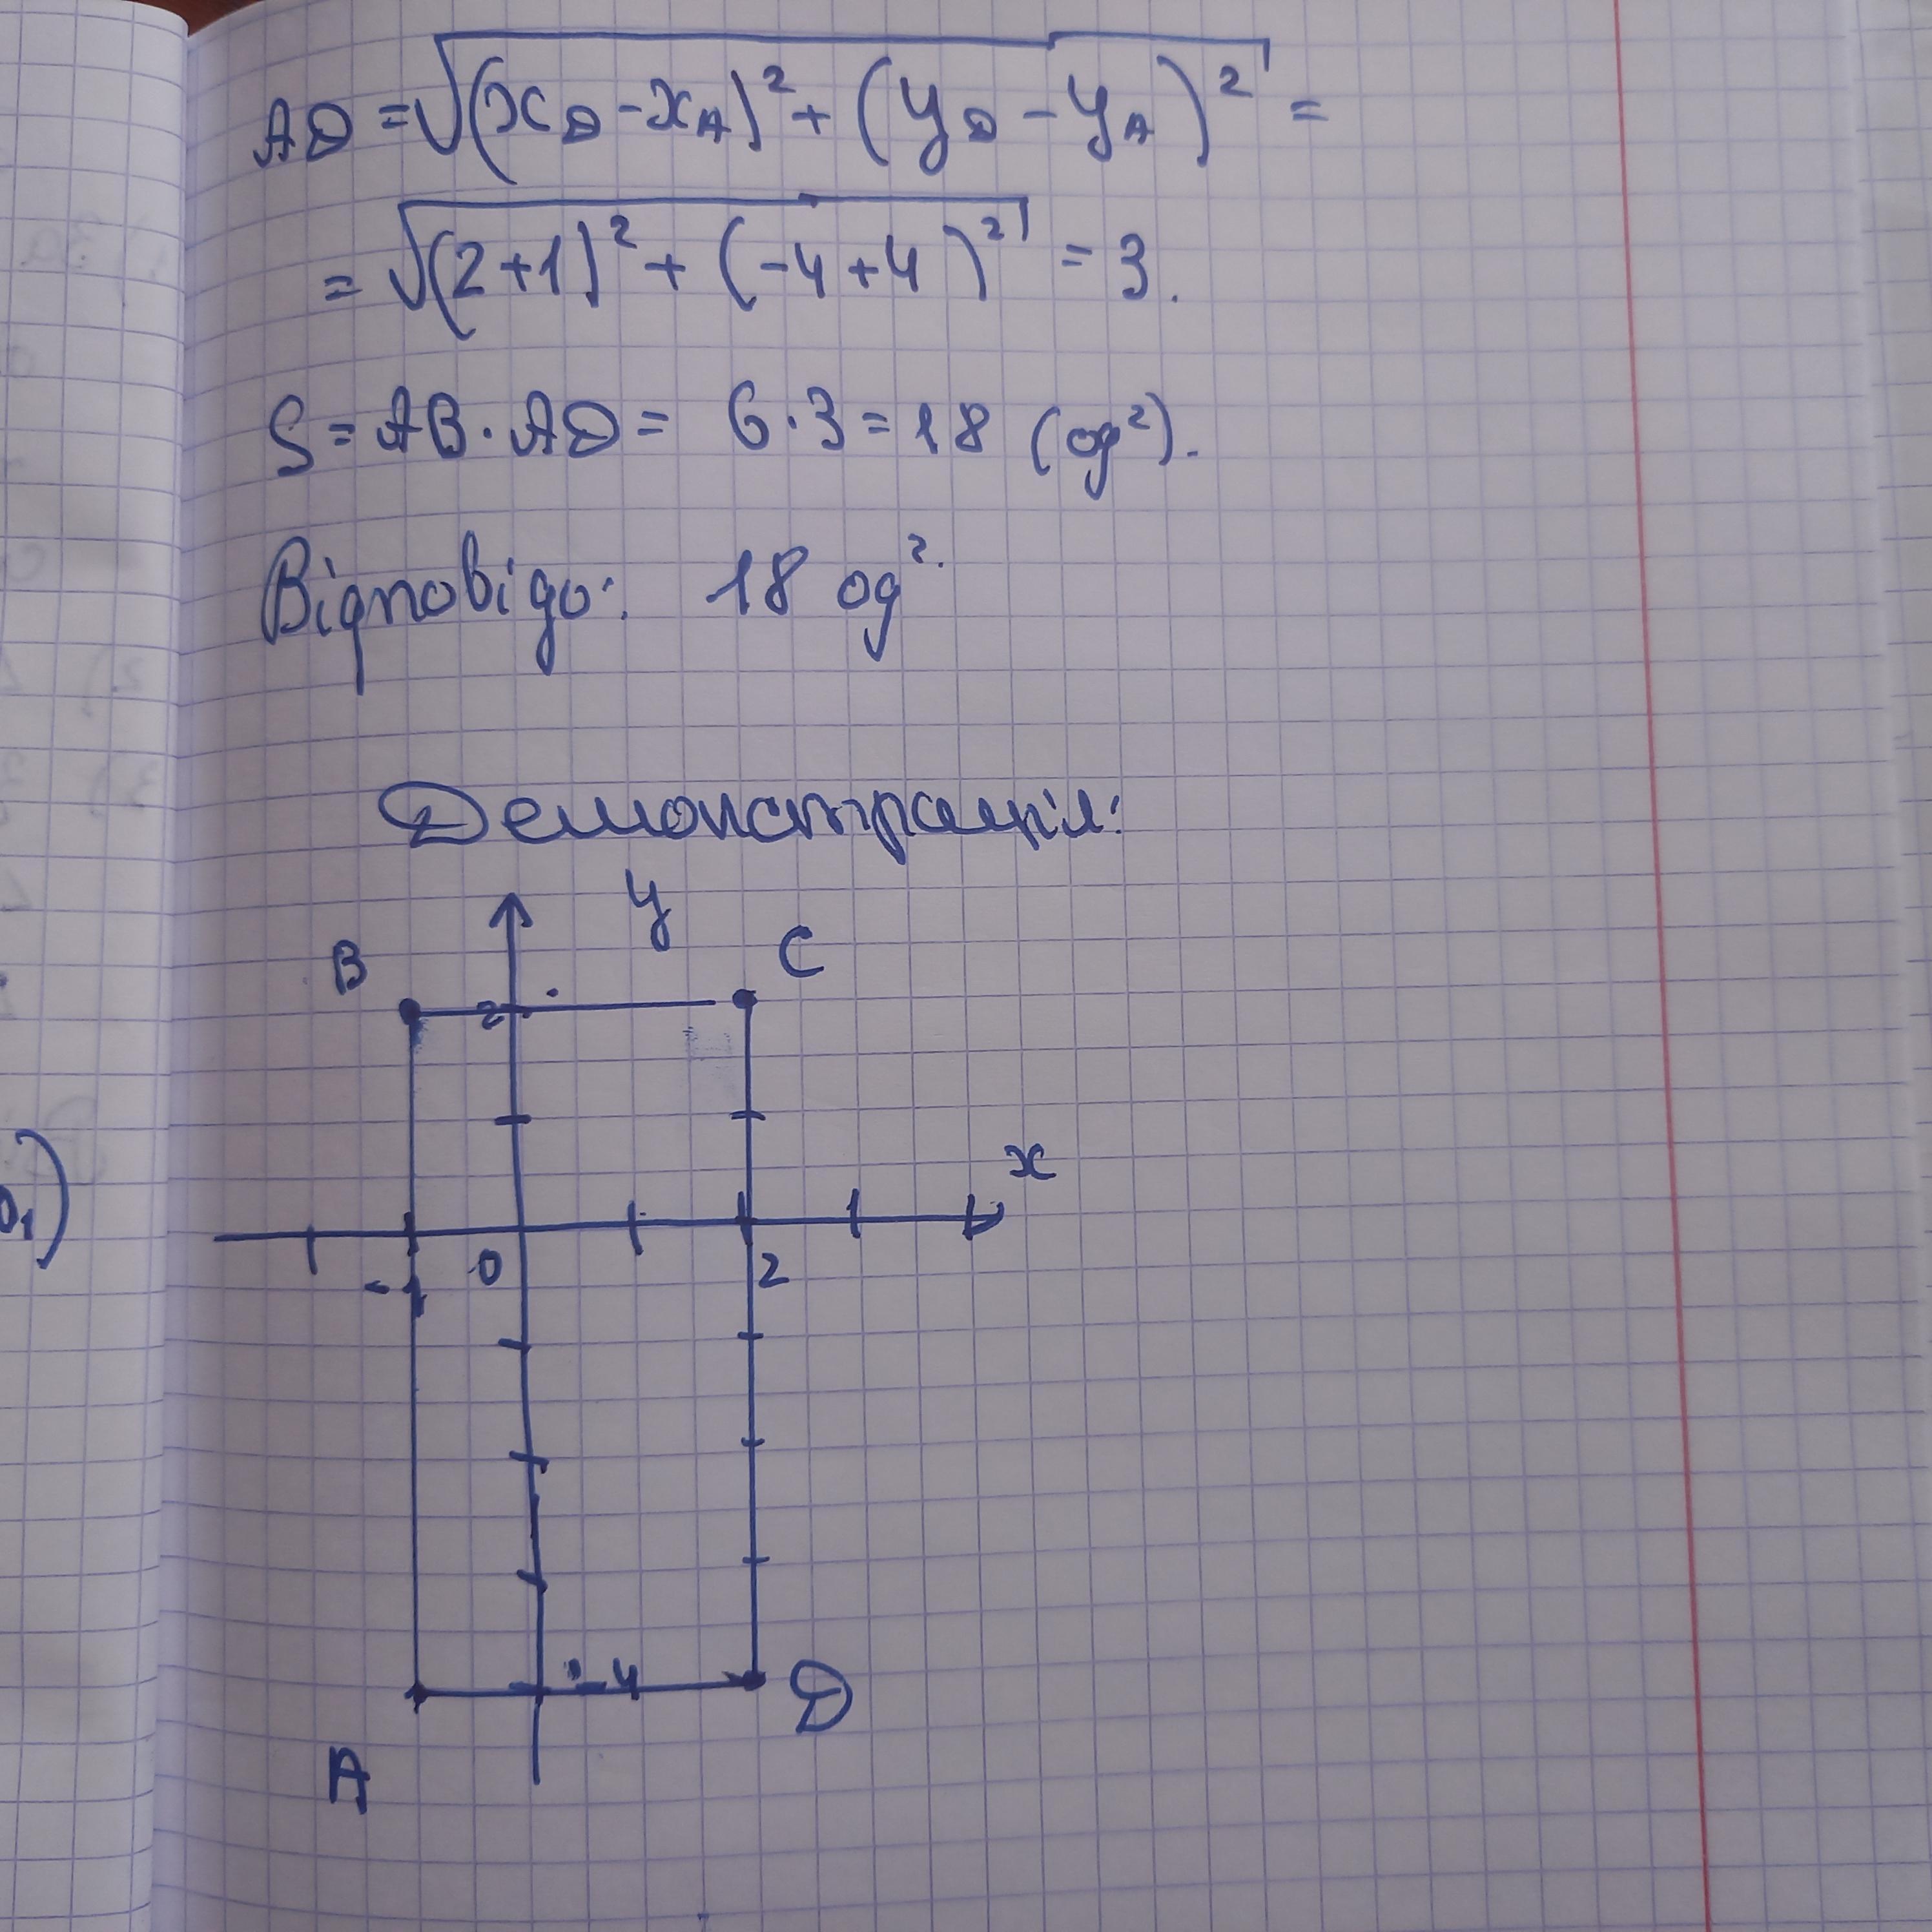 AD = √((x_D - x_A)² + (y_D - y_A)²) =
= √((2+1)² + (-4+4)²) = 3.
S = AB · AD = 6 · 3 = 18 (од²).
Відповідь: 18 од².
Демонстрація:
y
B
C
2
x
-1
0
2
-4
D
A